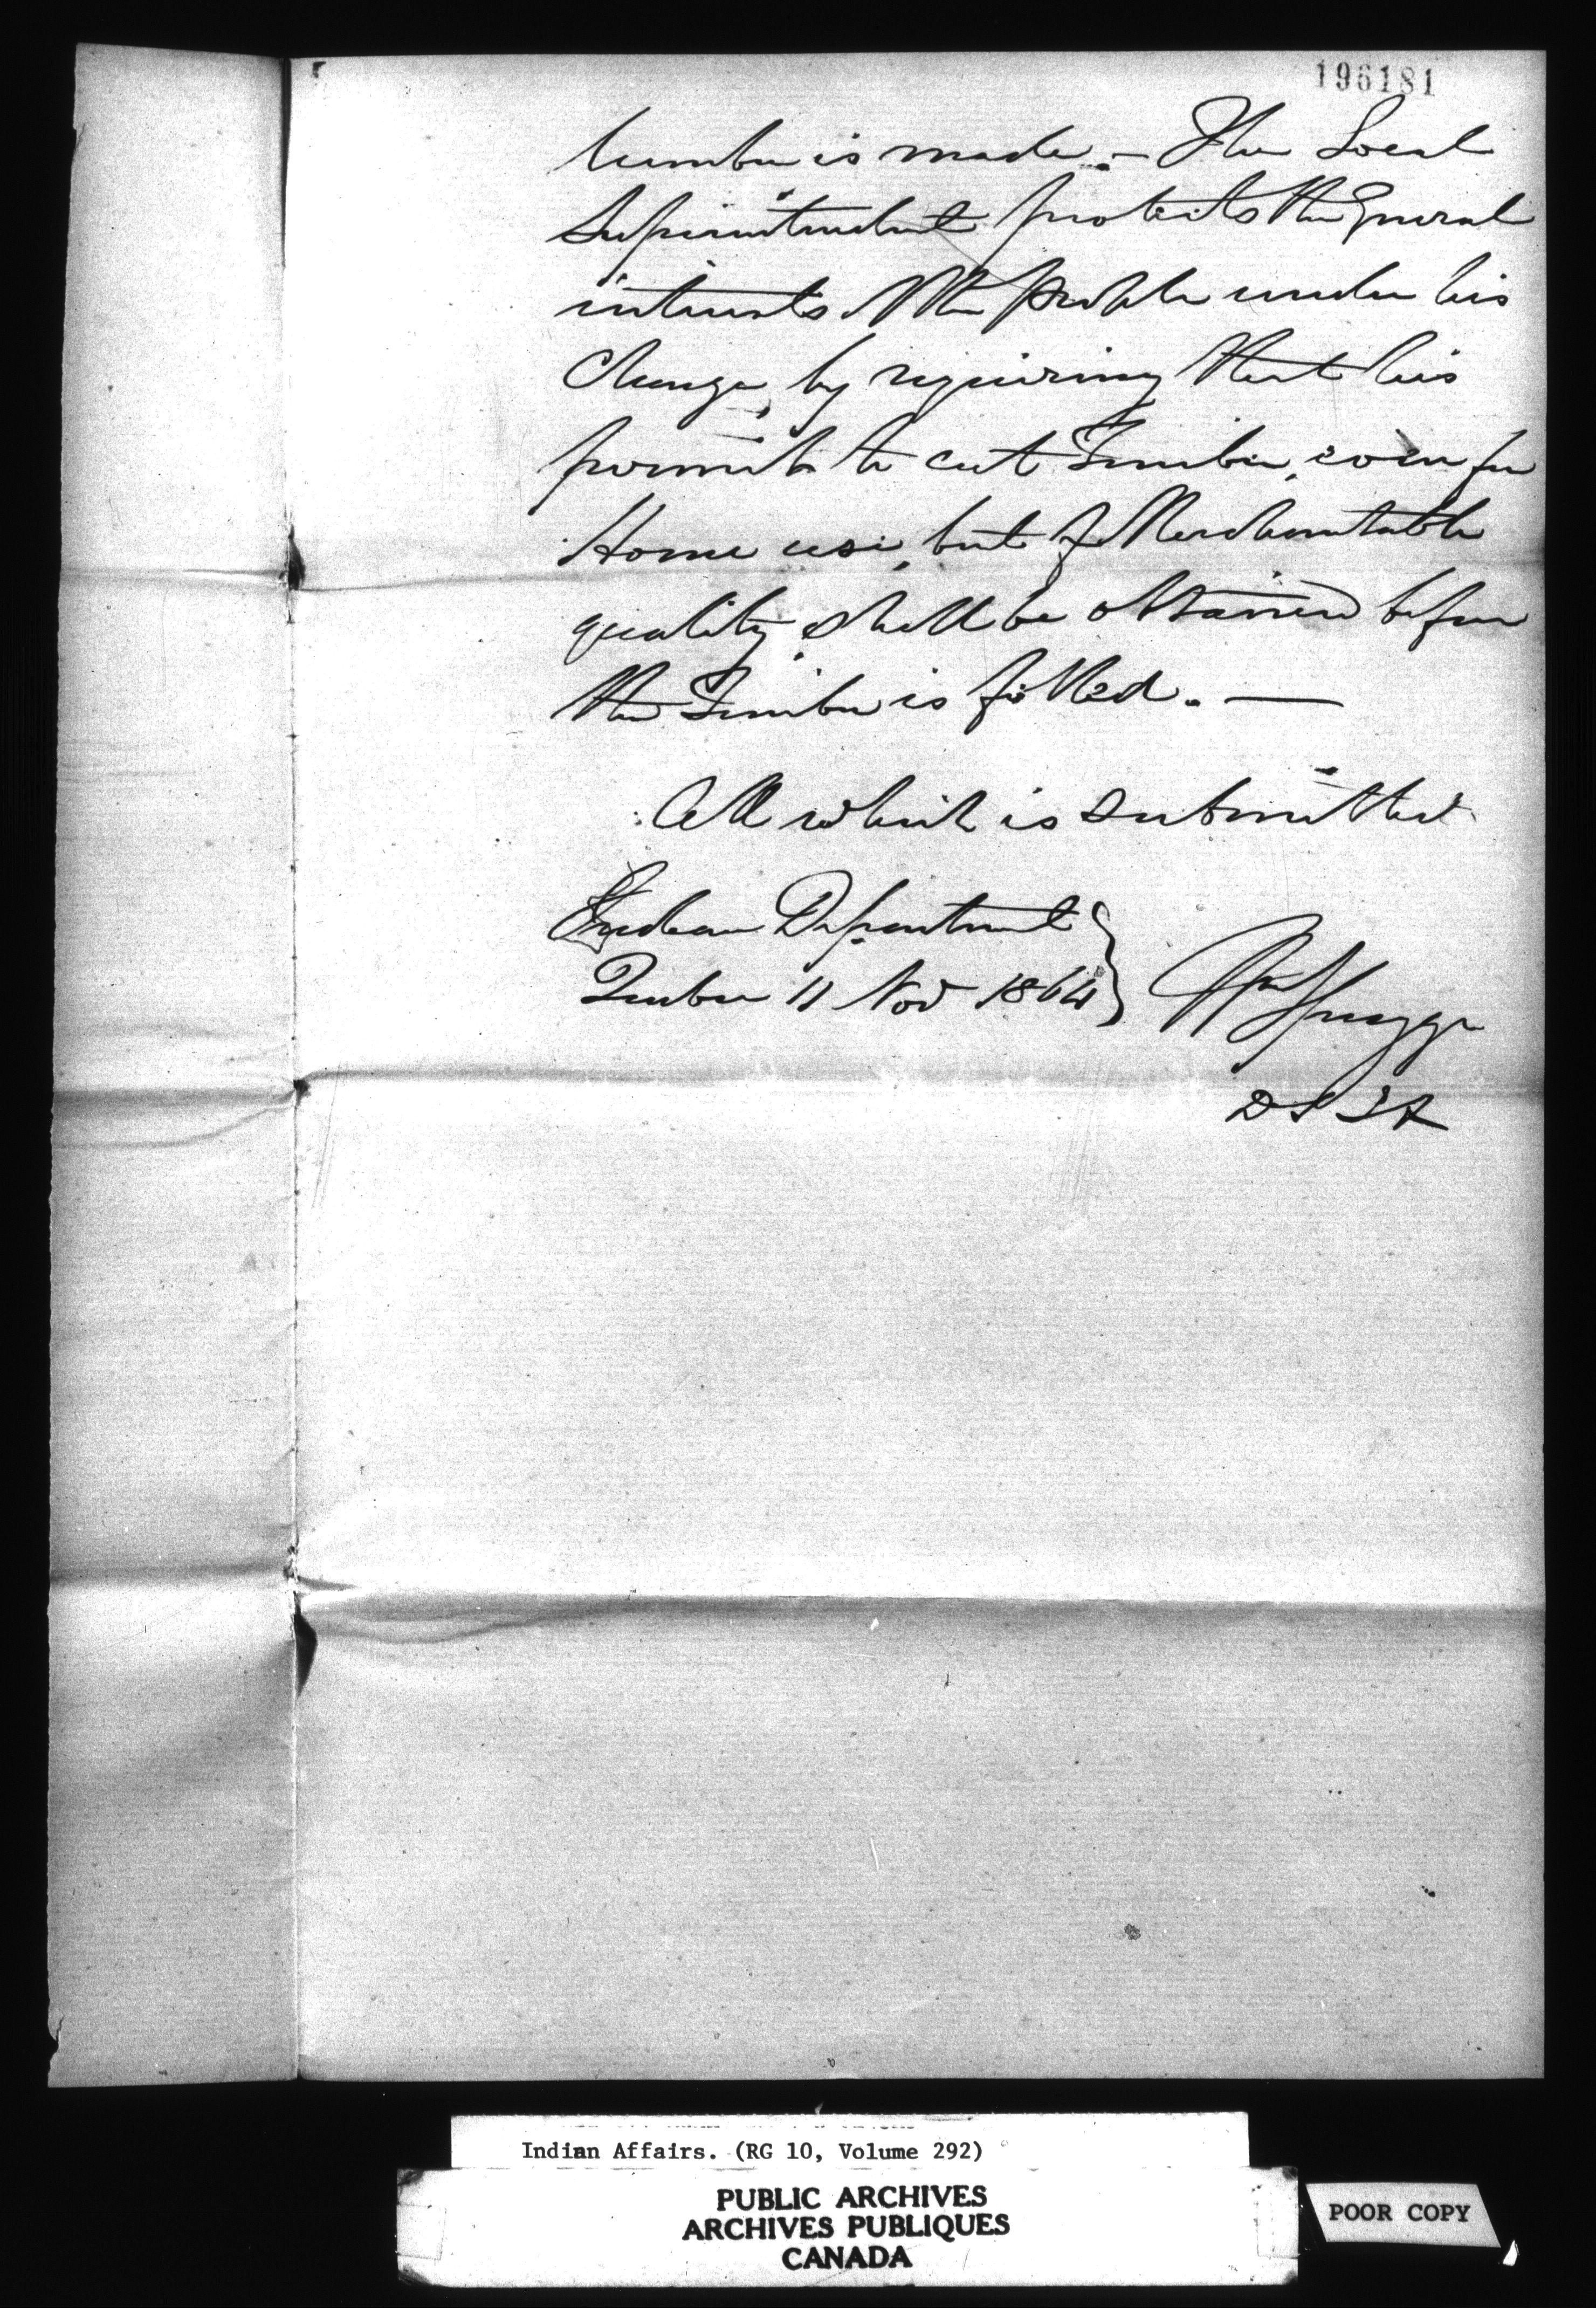 196181
lumber is made. – The Local
Superintendent protects the General
interests of the people under his
Charge, by requiring that his
permit to cut Timber, even for
Home use, but of Merchantable
quality, shall be obtained before
the Timber is felled. —
All which is submitted
Indian Department
Quebec 11 Nov 1864
Wm Spragge
DSIA
Indian Affairs. (RG 10, Volume 292)
PUBLIC ARCHIVES
ARCHIVES PUBLIQUES
CANADA
POOR COPY